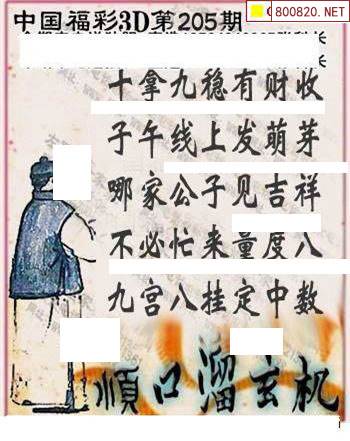 800820.NET
中国福彩3D第205期
十拿九稳有财收
子午线上发萌芽
哪家公子见吉祥
不必忙来量度八
九宫八挂定中数
順口溜玄机